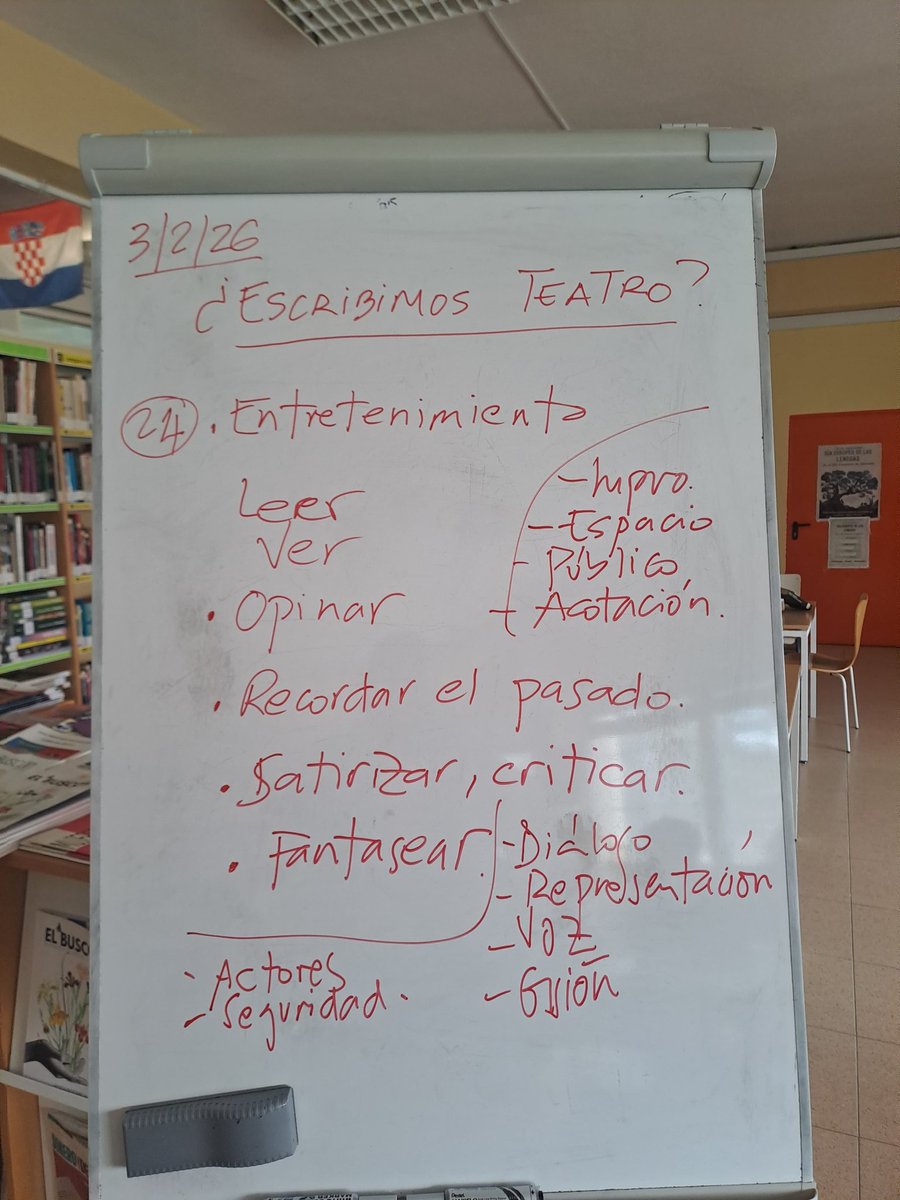 3/2/26
¿ESCRIBIMOS TEATRO?
24 • Entretenimiento
Leer
Ver
• Opinar
• Recordar el pasado.
• Satirizar, criticar.
• Fantasear.
- Impro.
- Espacio
- Público
- Acotación.
- Diálogo
- Representación
- Voz
- Actores
- Seguridad.
EL BUSC
DÍA EUROPEO DE LAS
LENGUAS